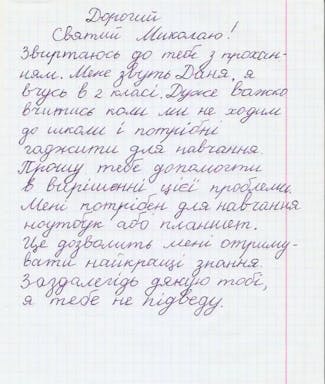 Дорогий
Святий Миколаю!
Звиртаюсь до тебе з прохан-
ням. Мене звуть Даня, я
вчусь в 2 класі. Дуже важко
вчитись коли ми не ходим
до школи і потрібні
гаджити для навчання.
Прошу тебе допомогти
в вирішенні цієї проблеми.
Мені потрібен для навчання
ноутбук або планшет.
Це дозволить мені отриму-
вати найкращі знання.
Заздалегідь дякую тобі,
я тебе не підведу.